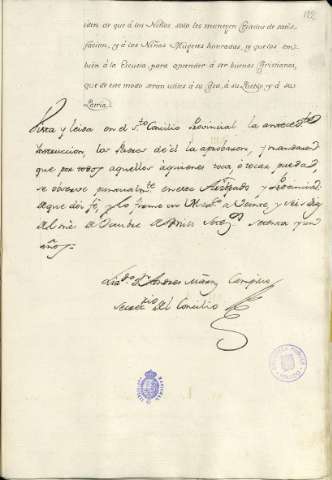 182
cion de que á los Niños solo les manejen Gracias de satis-
facion, y á las Niñas Mugeres honradas, y que los en-
bien á la Escuela para aprender á ser buenos Christianos,
que de este modo seran utiles á su Rey, á su Pueblo, y á su
Patria.
Vista y leida en el Sto. Concilio Provincial la antecedte.
Instruccion los Padres de él la aprobaron, y mandaron
que por todos aquellos á quienes toca, ó tocar pueda,
se observe puntualmte. en este Arzpdo. y Provincia,
de que doi fé, y lo firmo en Mexco. á veinte, y seis dias
del mes de Octubre de mil setecs. setenta y un
años.
Liz.do Dn. Andres Martz. Campillo
Secretrio. del Concilio